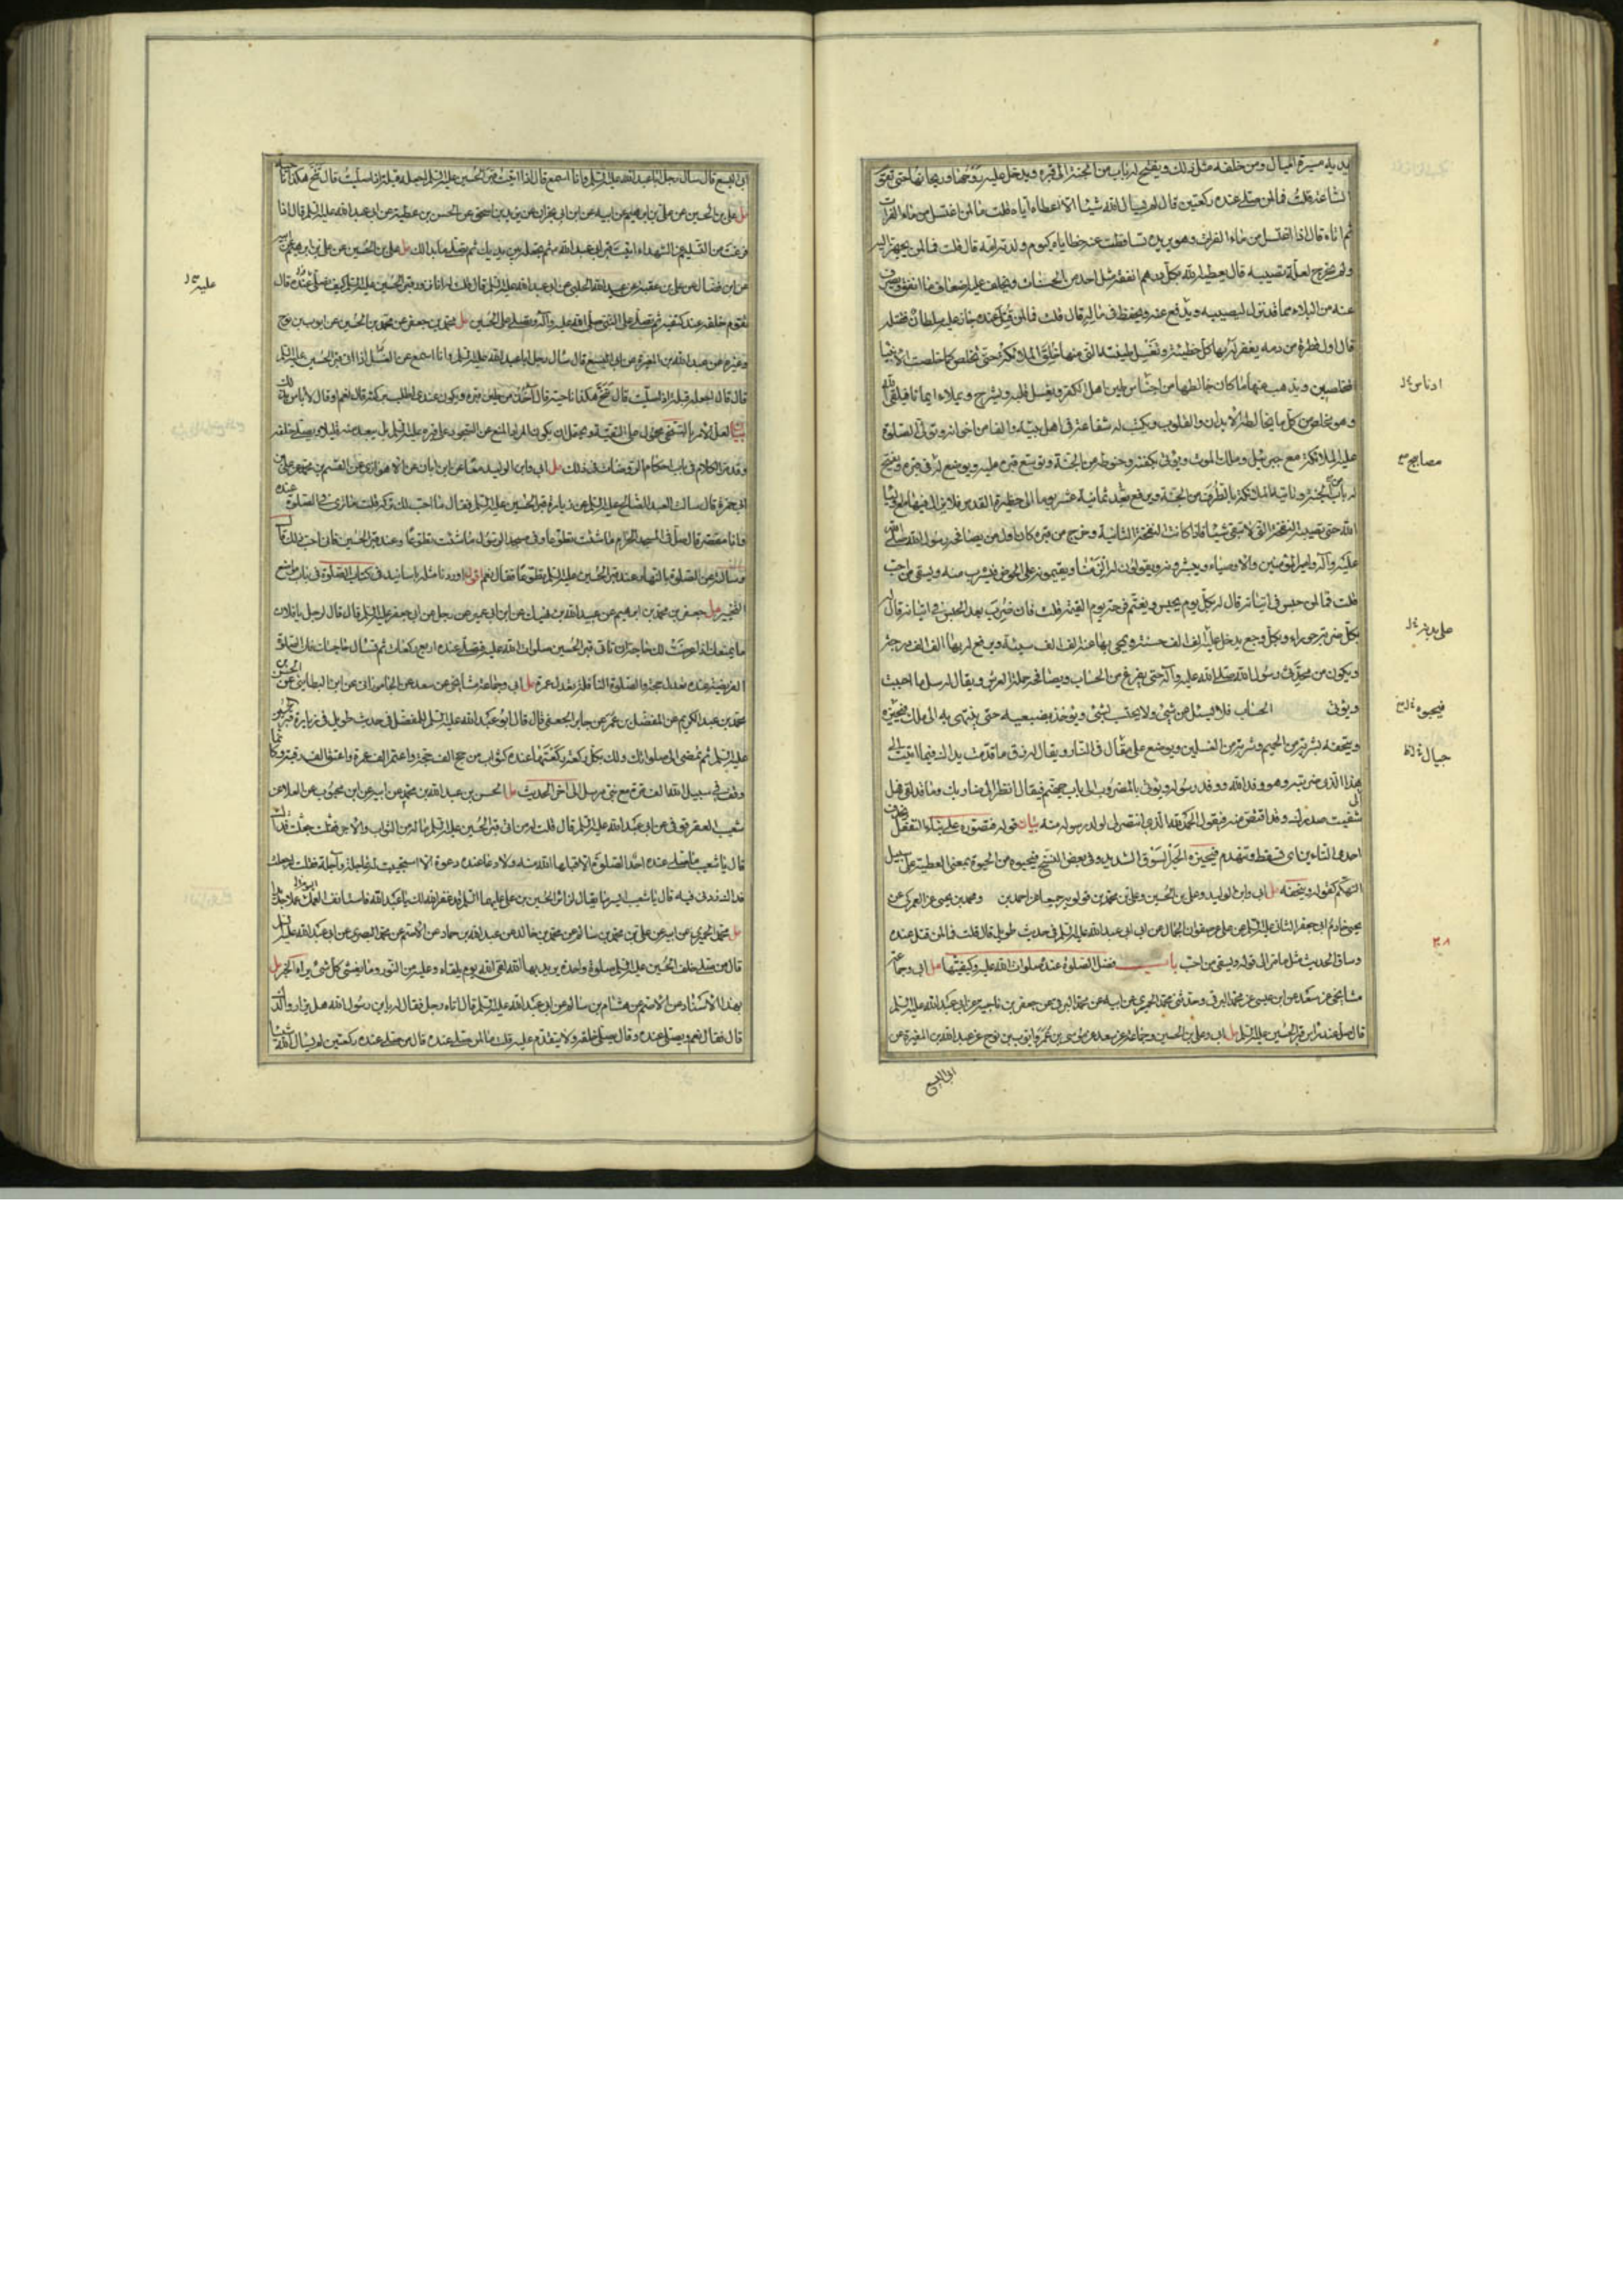 يديه مسيرة أميال ومن خلفه مثل ذلك ويفتح له باب من الجنة الى قبره ويدخل عليه روحها وريحانها حتى تقوم
الساعة قلت فما لمن صلى عنده ركعتين قال لم يسال الله شيئا الا اعطاه اياه قلت فما لمن اغتسل من ماء الفرات
ثم اتاه قال اذا اغتسل من ماء الفرات وهو يريده تساقطت عنه خطاياه كيوم ولدته امه قال قلت فما لمن يجهز اليه
ولم يخرج لعلة تصيبه قال يعطيه الله بكل درهم انفقه مثل احد من الحسنات ويخلف عليه اضعاف ما انفق ويصرف
عنه من البلاء مما قد نزل ليصيبه ويدفع عنه ويحفظ في ماله قال قلت فما لمن قتل عنده جار عليه سلطان فقتله
قال اول قطرة من دمه يغفر له بها كل خطيئة وتغسل طينته التي منها خلق الملائكة حتى تخلص كما خلصت الانبياء
المخلصين ويذهب عنها ما كان خالطها من اجناس طين اهل الكفر ويغسل قلبه ويشرح ويملاء ايمانا فيلقى الله
وهو مخلص من كل ما يخالطه الابدان والقلوب ويكتب له شفاعة في اهل بيته والف من اخوانه وتولى الصلوة
عليه الملائكة مع جبرئيل وملك الموت ويؤتى بكفنه وحنوطه من الجنة ويوسع قبره عليه ويوضع له في قبره ويفتح
له باب من الجنة وتاتيه الملائكة بالطرف من الجنة ويرفع بعد ثمانية عشر يوما الى حظيرة القدس فلا يزال فيها مع اولياء
الله حتى تصيبه النفخة التي لا تبقي شيئا فاذا كانت النفخة الثانية وخرج من قبره كان اول من يصافحه رسول الله صلى الله
عليه وآله وامير المؤمنين والاوصياء ويبشرونه ويقولون له الزمنا ويقيمونه على الحوض فيشرب منه ويسقي من احب
قلت فما لمن حبس في اتيانه قال له بكل يوم يحبس ويغتم فرحة يوم القيمة قلت فان ضرب بعد الحبس في اتيانه قال له
بكل ضربة حوراء وبكل وجع يدخل عليه الف الف حسنة ويمحى بها عنه الف الف سيئة ويرفع له بها الف الف درجة
ويكون من محدثي رسول الله صلى الله عليه وآله حتى يفرغ من الحساب ويصافحه حملة العرش ويقال له سل ما احببت
ويؤتى الحساب فلا يسئل عن شئ ولا يحتسب بشئ ويؤخذ بضبعيه حتى ينتهى به الى ملك فيحيزه
ويتحفه بشربة من الحميم وشربة من الغسلين ويوضع على مقال في النار ويقال له ذق ما قدمت يداك فيما اتيت الى
هذا الذي ضربته وهو وفد الله ووفد رسوله ويؤتى بالمضروب الى باب جهنم فيقال انظر الى ضاربك وما قد لقي فهل
شفيت صدرك وقد اقتص منه فيقول الحمد لله الذي انتصر لي ولولد رسوله منه بيان قوله فتصوره على بناء التفعل بحذف
احدى التاءين اى تسقط وتنهدم فيحيزه الحيز السوق الشديد وفي بعض النسخ فيحبوه من الحبوة بمعنى العطية على سبيل
التهكم كقوله ويتحفه مل ابي وابن الوليد وعلي بن الحسين وعلي بن محمد بن قولويه جميعا عن احمد بن ومحمد بن يحيى عن العمركي عن
يحيى خادم ابي جعفر الثاني عليه السلم عن علي عن صفوان الجمال عن ابي عبد الله عليه السلم في حديث طويل قال قلت فما لمن قتل عنده
وساق الحديث مثل ما مر الى قوله ويسقي من احب باب فضل الصلوة عنده صلوات الله عليه وكيفيتها مل ابي وجماعة
مشايخي عن سعد عن ابن عيسى عن محمد البرقي وحدثني محمد الحميري عن ابيه عن محمد البرقي عن جعفر بن ناجية عن ابي عبد الله عليه السلم
قال صل عند راس قبر الحسين عليه السلم مل ابي وعلي بن الحسين وجماعة عن سعد عن موسى بن عمر وايوب بن نوح عن عبد الله بن المغيرة عن
ابي اليسع
ادناس
مصابيح
فيحبوه
جبال
ابي اليسع قال سال رجل ابا عبد الله عليه السلم وانا اسمع قال اذا اتيت قبر الحسين عليه السلم اجعله قبلة اذا صليت قال تنح هكذا ناحية
مل علي بن الحسين عن علي بن ابراهيم عن ابيه عن ابن ابي نجران عن يزيد بن اسحق عن الحسن بن عطية عن ابي عبد الله عليه السلم قال اذا
فرغت من التسليم على الشهداء اتيت قبر ابي عبد الله ثم تجعله بين يديك ثم تصلي ما بدا لك مل علي بن الحسين عن علي بن ابرهيم عن ابيه
عن ابن فضال عن علي بن عقبة عن عبيد الله الحلبي عن ابي عبد الله عليه السلم قال قلت له انا نزور قبر الحسين عليه السلم كيف نصلي عنده قال
تقوم خلفه عند كتفيه ثم تصلي على النبي صلى الله عليه وآله وتصلي على الحسين مل محمد بن جعفر عن محمد بن الحسين عن ايوب بن نوح
وغيره عن عبد الله بن المغيرة عن ابي اليسع قال سال رجل ابا عبد الله عليه السلم وانا اسمع عن الغسل اذا اتى قبر الحسين عليه السلم
وقد مر الكلام في باب احكام الروضات في ذلك مل ابي وابن الوليد معا عن ابن ابان عن الاهوازي عن القسم بن محمد عن علي بن
ابي حمزة قال سالت العبد الصالح عليه السلم عن زيارة قبر الحسين عليه السلم فقال ما احب لك تركه قلت ما ترى في الصلوة عنده
وانا مقصر قال صل في المسجد الحرام ما شئت تطوعا وفي مسجد الرسول ما شئت تطوعا وعند قبر الحسين فاني احب ذلك قال
وسالته عن الصلوة بالنهار عند قبر الحسين عليه السلم تطوعا فقال نعم اقول اوردنا مثله باسانيد في كتاب الصلوة في باب مواضع
التخيير مل جعفر بن محمد بن ابراهيم عن عبيد الله بن نهيك عن ابن ابي عمير عن رجل عن ابي جعفر عليه السلم قال قال لرجل يا فلان
ما يمنعك اذا عرضت لك حاجة ان تاتي قبر الحسين صلوات الله عليه فتصلي عنده اربع ركعات ثم تسال حاجتك فان الصلوة
الفريضة عنده تعدل حجة والصلوة النافلة تعدل عمرة مل ابي وجماعة مشايخي عن سعد عن الجاموراني عن ابن البطايني عن الحسن بن
محمد بن عبد الكريم عن المفضل بن عمر عن جابر الجعفي قال قال ابو عبد الله عليه السلم للمفضل في حديث طويل في زيارة قبر الحسين
عليه السلم ثم تمضي الى صلواتك ولك بكل ركعة ركعتها عنده كثواب من حج الف حجة واعتمر الف عمرة واعتق الف رقبة وكانما
وقف في سبيل الله الف مرة مع نبي مرسل الى آخر الحديث مل الحسن بن عبد الله بن محمد عن ابيه عن ابن محبوب عن العلا عن
شعيب العقرقوفي عن ابي عبد الله عليه السلم قال قلت له من اتى قبر الحسين عليه السلم ما له من الثواب والاجر جعلت فداك
قال يا شعيب ما صلى عنده احد الصلوة الا قبلها الله منه ولا دعا عنده دعوة الا استجيبت له عاجلة وآجلة فقلت
مل محمد الحميري عن ابيه عن علي بن محمد بن سالم عن محمد بن خالد عن عبد الله بن حماد عن الاصم عن محمد البصري عن ابي عبد الله عليه السلم
قال من صلى خلف الحسين عليه السلم صلوة واحدة يريد بها الله لقى الله يوم يلقاه وعليه من النور وما يغشى كل شئ يراه الخبر مل
بهذا الاسناد عن الاصم عن هشام بن سالم عن ابي عبد الله عليه السلم قال اتاه رجل فقال له يا ابن رسول الله هل يزار والدك
قال فقال نعم ويصلى عنده وقال يصلى خلفه ولا يتقدم عليه قلت فما لمن صلى عنده قال من صلى عنده ركعتين لم يسال الله شيئا